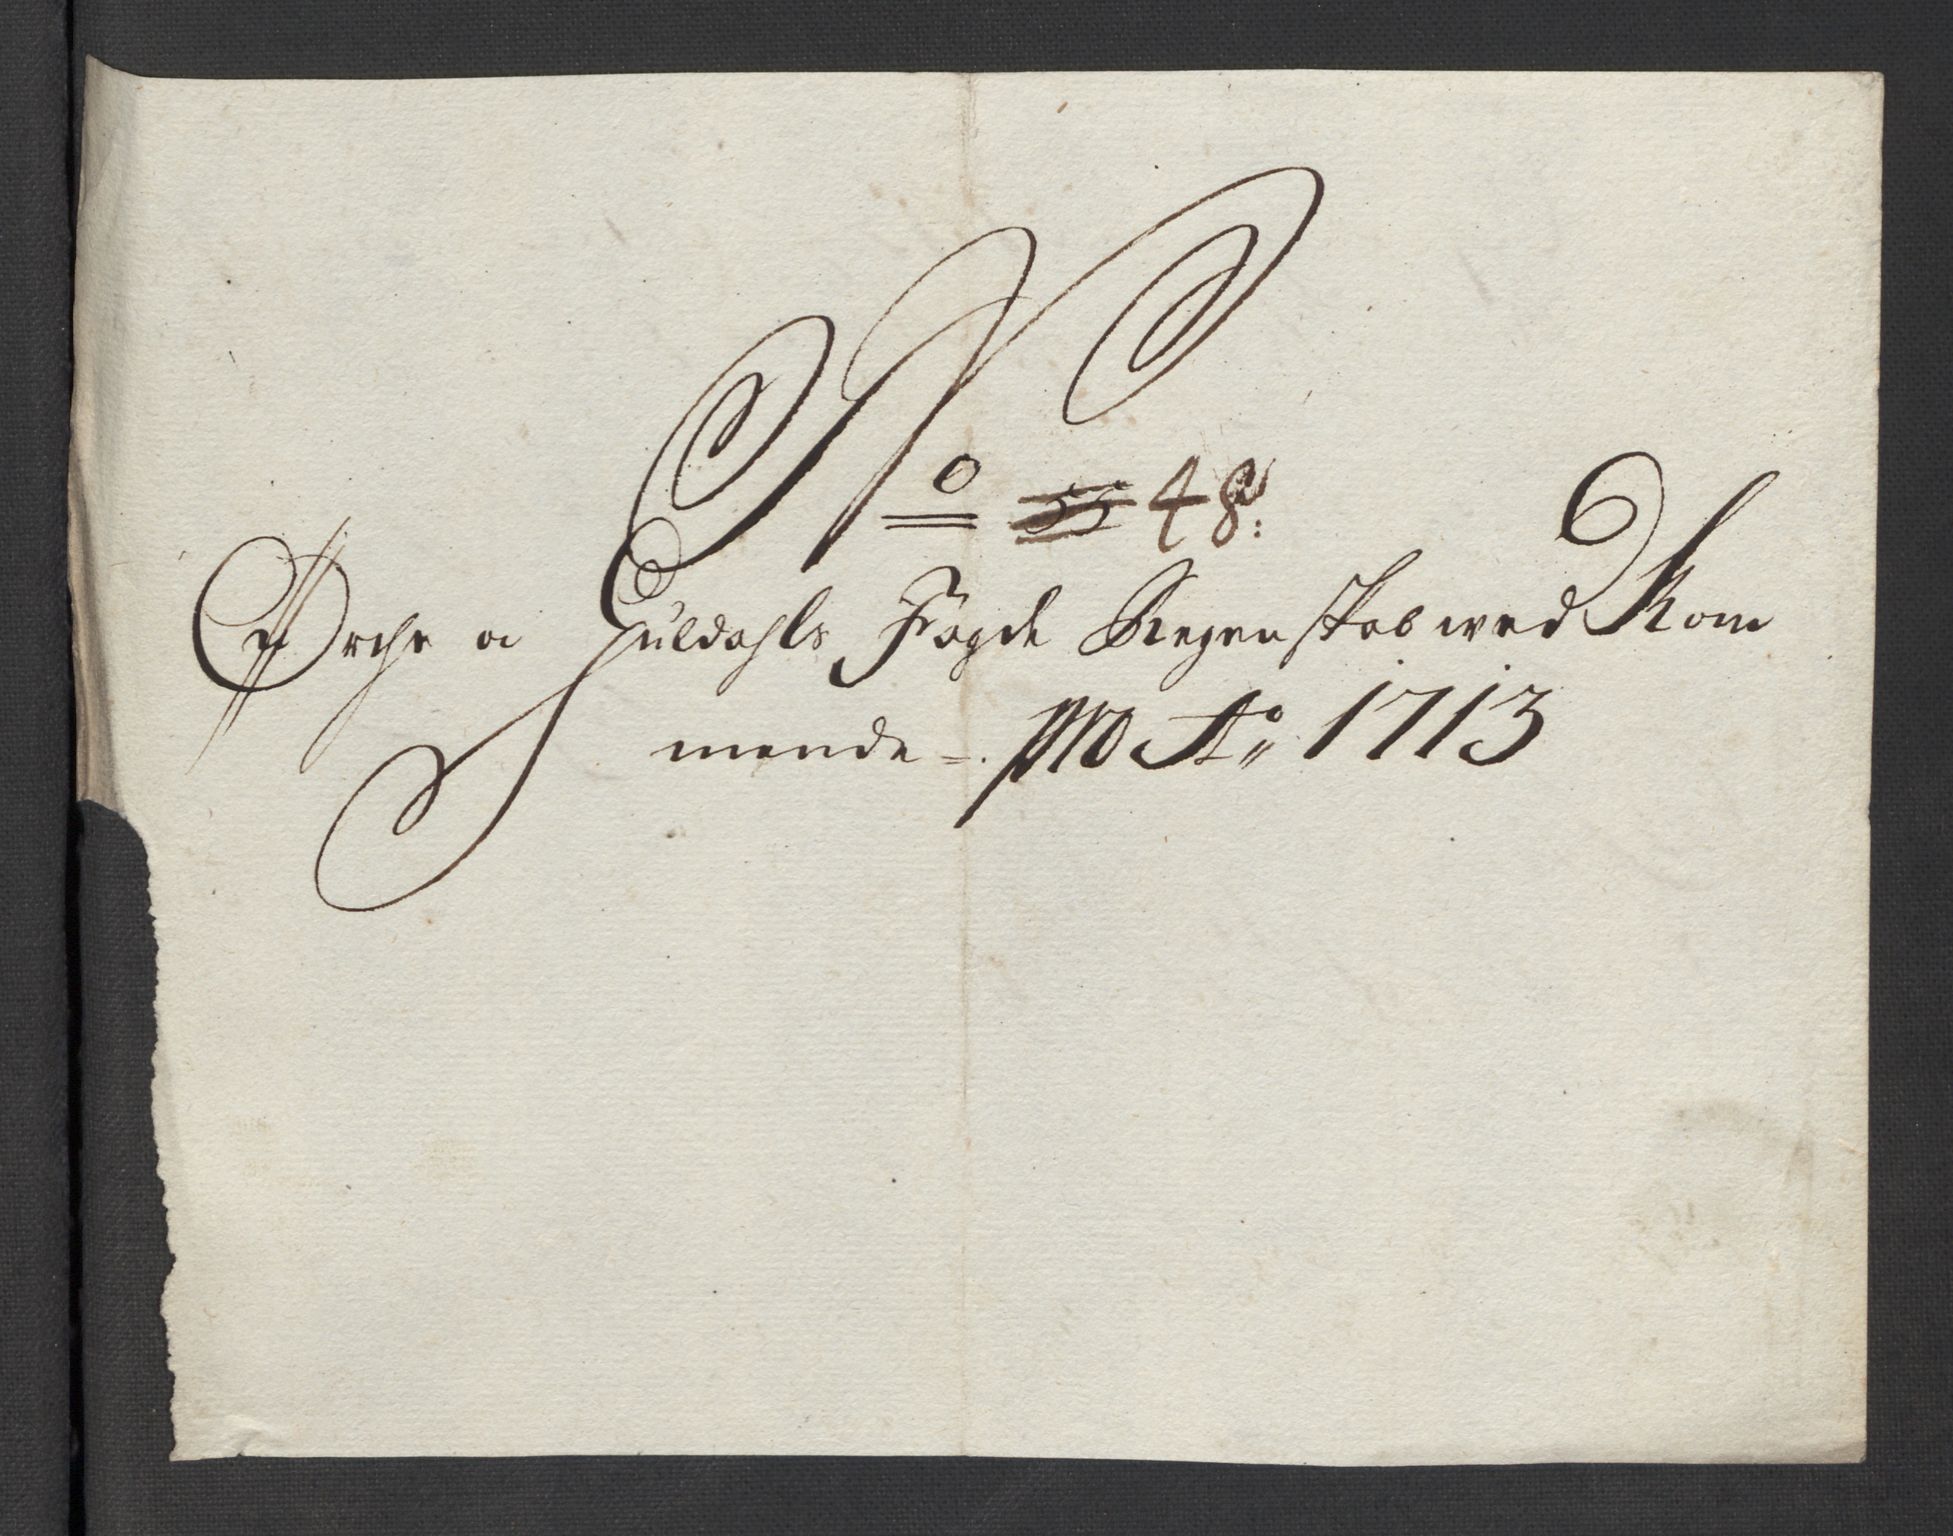 No 55 48:
Ørche og Guldahls Fogde Regenskab wed Kom
mende =. pro Ao 1713